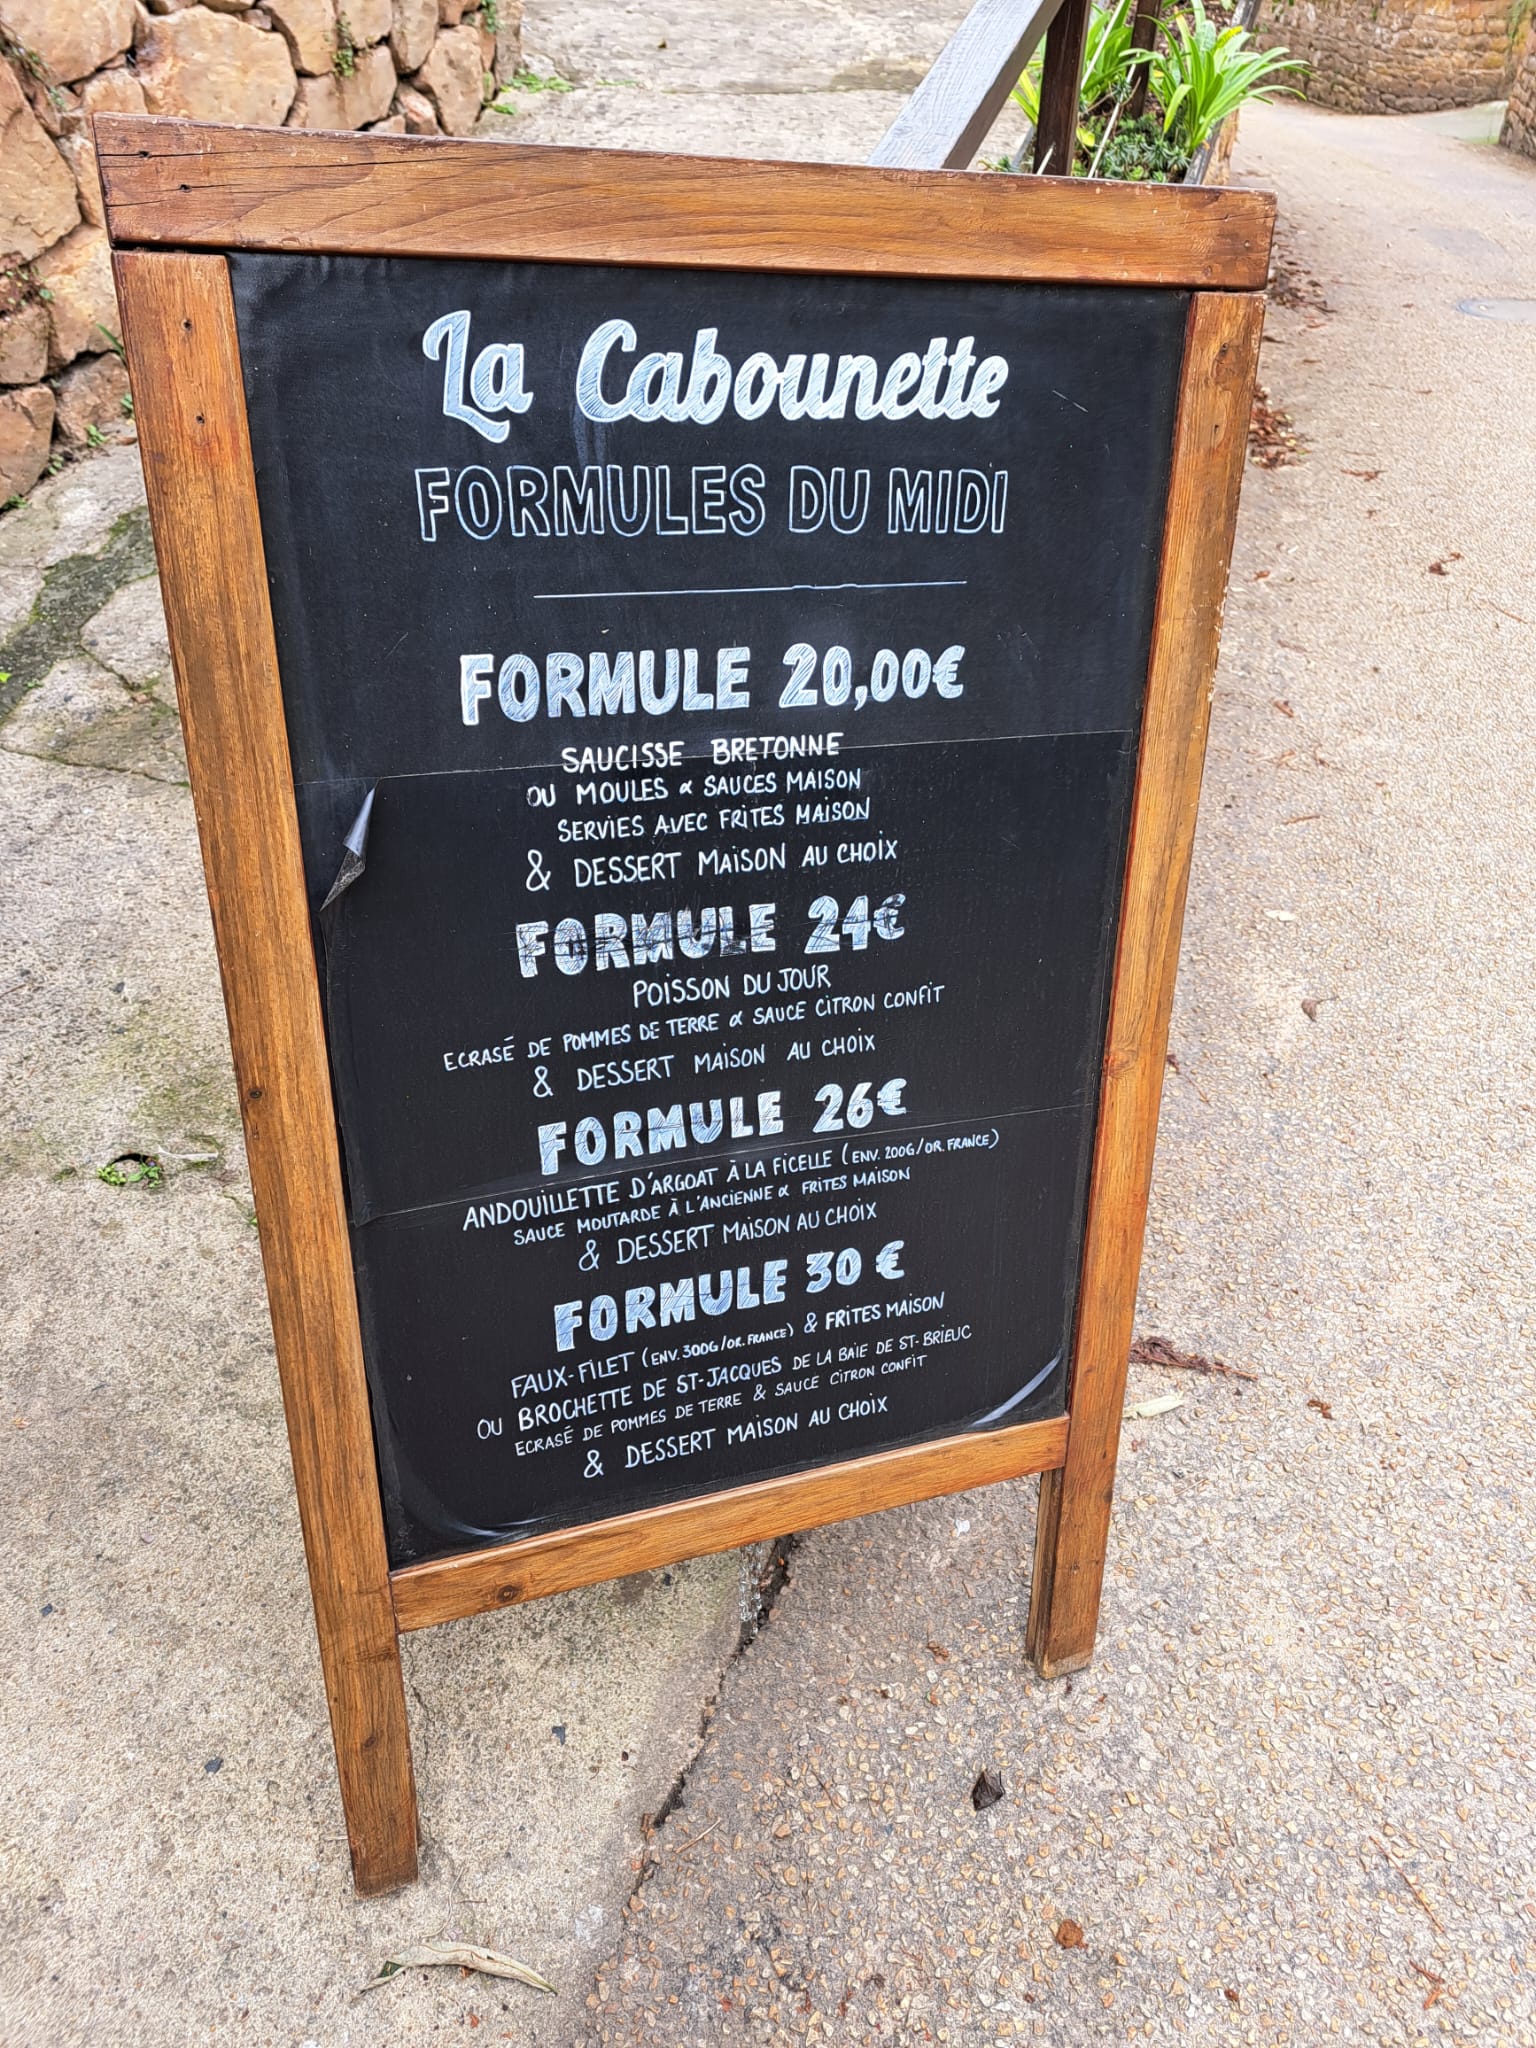 La Cabounette
FORMULES DU MIDI
FORMULE 20,00€
SAUCISSE BRETONNE
OU MOULES & SAUCES MAISON
SERVIES AVEC FRITES MAISON
& DESSERT MAISON AU CHOIX
FORMULE 24€
POISSON DU JOUR
ECRASÉ DE POMMES DE TERRE & SAUCE CITRON CONFIT
& DESSERT MAISON AU CHOIX
FORMULE 26€
ANDOUILLETTE D'ARGOAT À LA FICELLE (ENV. 200G/OR. FRANCE)
SAUCE MOUTARDE À L'ANCIENNE & FRITES MAISON
& DESSERT MAISON AU CHOIX
FORMULE 30 €
FAUX-FILET (ENV. 300G/OR. FRANCE) & FRITES MAISON
OU BROCHETTE DE ST-JACQUES DE LA BAIE DE ST-BRIEUC
ECRASÉ DE POMMES DE TERRE & SAUCE CITRON CONFIT
& DESSERT MAISON AU CHOIX